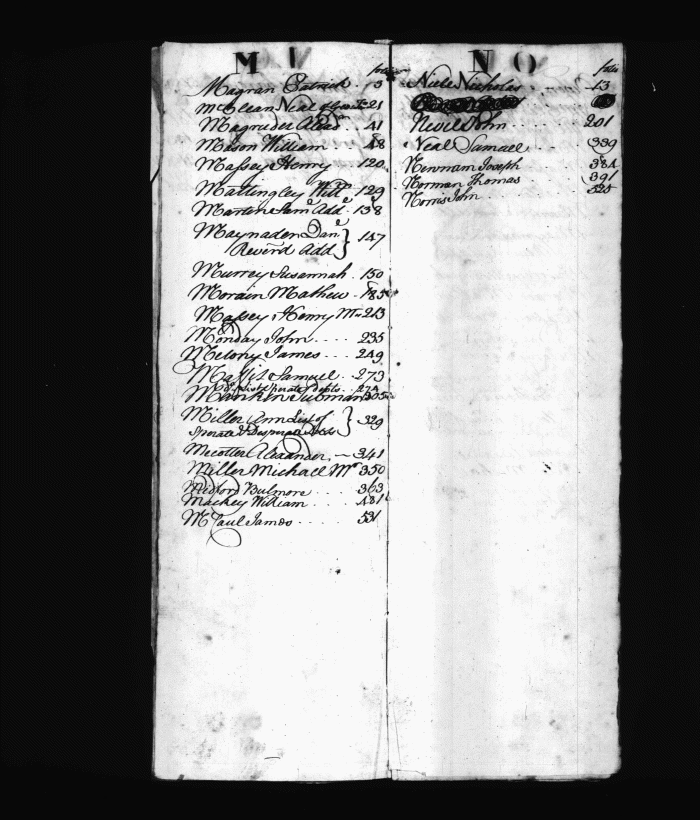 M
folio
Magran Patrick . 5
McClean Neal 21
Magruder Alexdr. 41
Mason William . . 48
Massey Henry . . . 120
Mattingley Willm 129
Marten Saml Add. 138
Maynader Danl } 147
Reverd Add
Murrey Susannah . 150
Morain Mathew . 185
Massey Henry Mr 213
Monday John . . . . 235
Melony James . . . 249
Maffit Samuel . . 273
Do. List Sperate Debts . . 274
Mankin Tubman 305
Miller Ann List of } 329
Sperate & Desperate
Mecotter Alexander . — 341
Miller Michaell Mr 350
Midford Bulmore . . . 363
Mackey William . . . . 481
McPaul James . . . . 531
N O
folio
Niele Nicholas . . . 13
Nevil John . . . . . 201
Neal Samuel . . . . 339
Newnam Joseph . . . 384
Norman Thomas . . . 391
Norris John . . . . 525